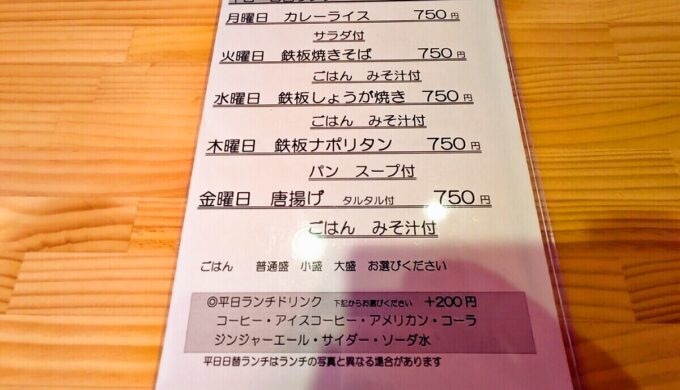 月曜日 カレーライス 750円
サラダ付
火曜日 鉄板焼きそば 750円
ごはん みそ汁付
水曜日 鉄板しょうが焼き 750円
ごはん みそ汁付
木曜日 鉄板ナポリタン 750円
パン スープ付
金曜日 唐揚げ タルタル付 750円
ごはん みそ汁付
ごはん 普通盛 小盛 大盛 お選びください
◎平日ランチドリンク 下記からお選びください +200円
コーヒー・アイスコーヒー・アメリカン・コーラ
ジンジャーエール・サイダー・ソーダ水
平日日替ランチはランチの写真と異なる場合があります